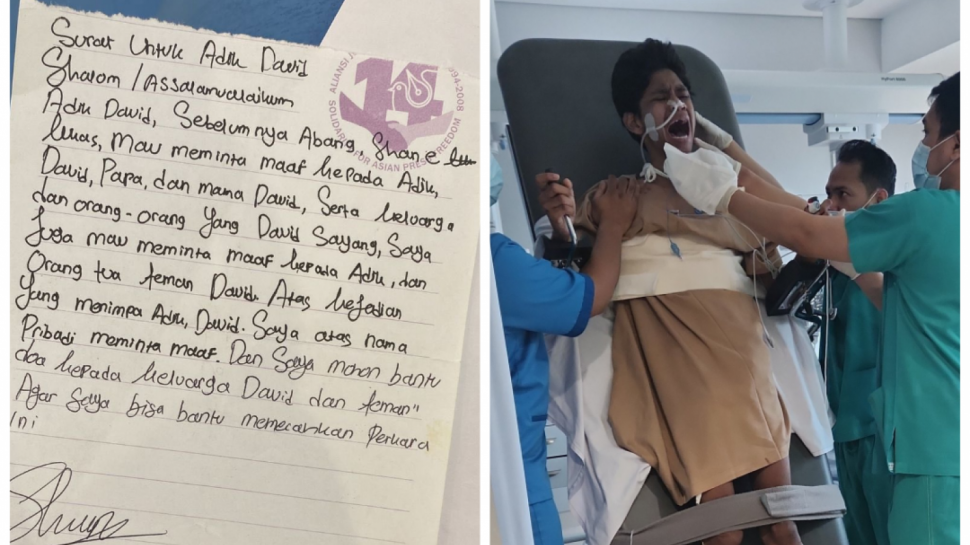 Surat Untuk Adik David
Shalom / Assalamualaikum
Adik David, Sebelumnya Abang, Shane
lukas, Mau meminta maaf kepada Adik,
David, Papa, dan mama David, Serta keluarga
dan orang-orang Yang David Sayang, Saya
Juga mau meminta maaf kepada Adik, dan
Orang tua teman David. Atas kejadian
Yang menimpa Adik, David. Saya atas nama
Pribadi meminta maaf. Dan Saya mohon bantu
doa kepada keluarga David dan teman"
Agar Saya bisa bantu memecahkan Perkara
Ini
ALIANSI
1994-2008
14
SOLIDARI FOR ASIAN PRESS FREEDOM